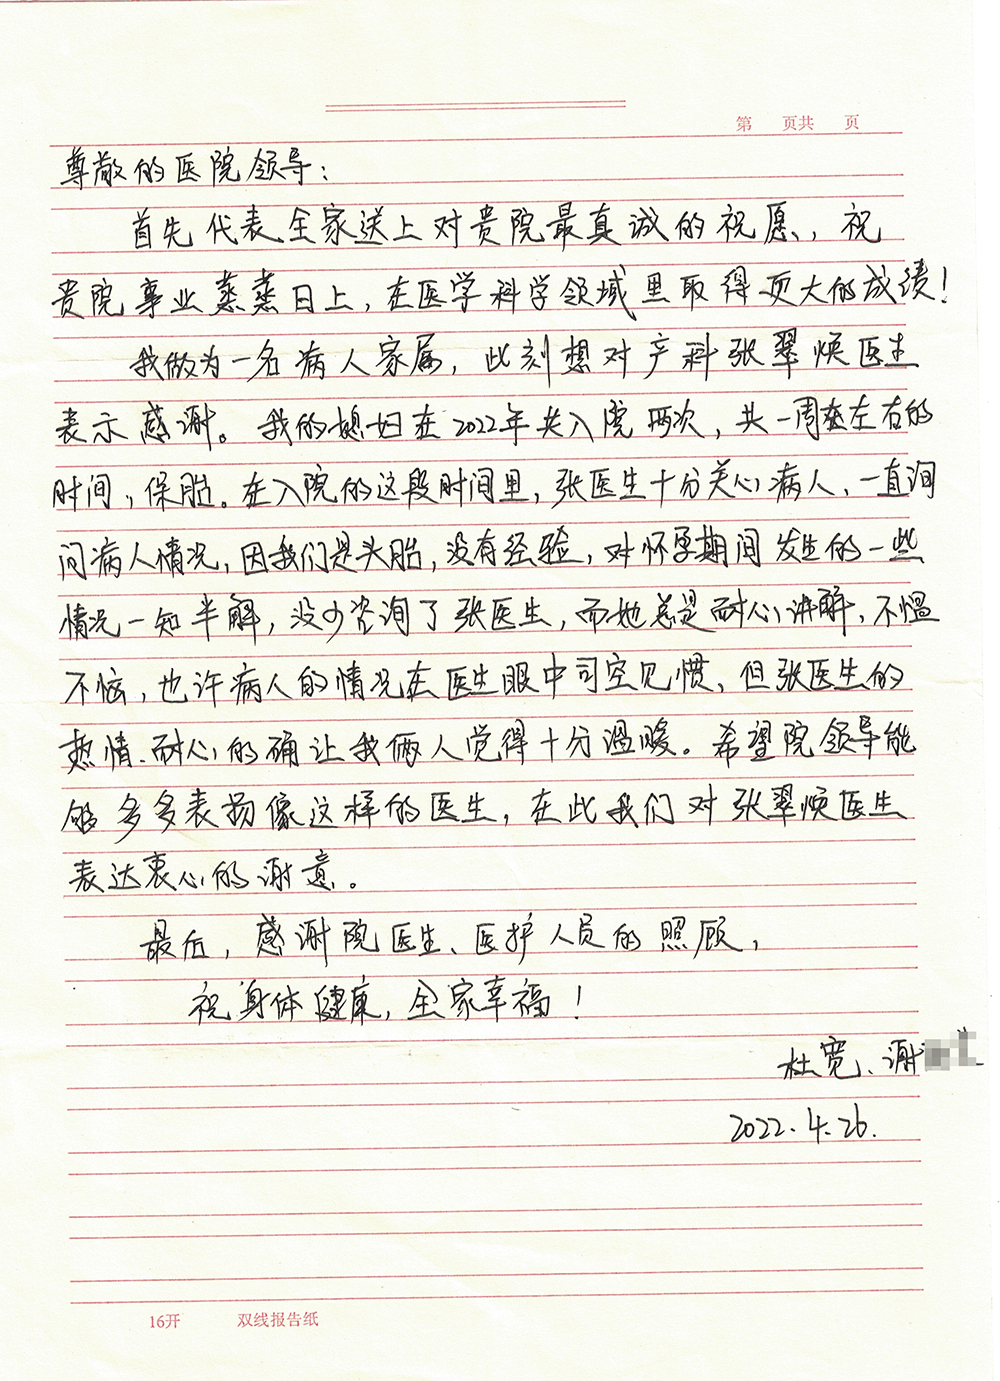 第 页共 页
尊敬的医院领导：
首先代表全家送上对贵院最真诚的祝愿，祝
贵院事业蒸蒸日上，在医学科学领域里取得更大的成绩！
我做为一名病人家属，此刻想对产科张翠焕医生
表示感谢。我的媳妇在2022年共入院两次，共一周左右的
时间，保胎。在入院的这段时间里，张医生十分关心病人，一直询
问病人情况，因我们是头胎，没有经验，对怀孕期间发生的一些
情况一知半解，没少咨询了张医生，而她总是耐心讲解，不愠
不恼，也许病人的情况在医生眼中司空见惯，但张医生的
热情、耐心的确让我俩人觉得十分温暖。希望院领导能
够多多表扬像这样的医生，在此我们对张翠焕医生
表达衷心的谢意。
最后，感谢院医生、医护人员的照顾，
祝身体健康，全家幸福！
杜宽、谢
2022.4.26.
16开 双线报告纸